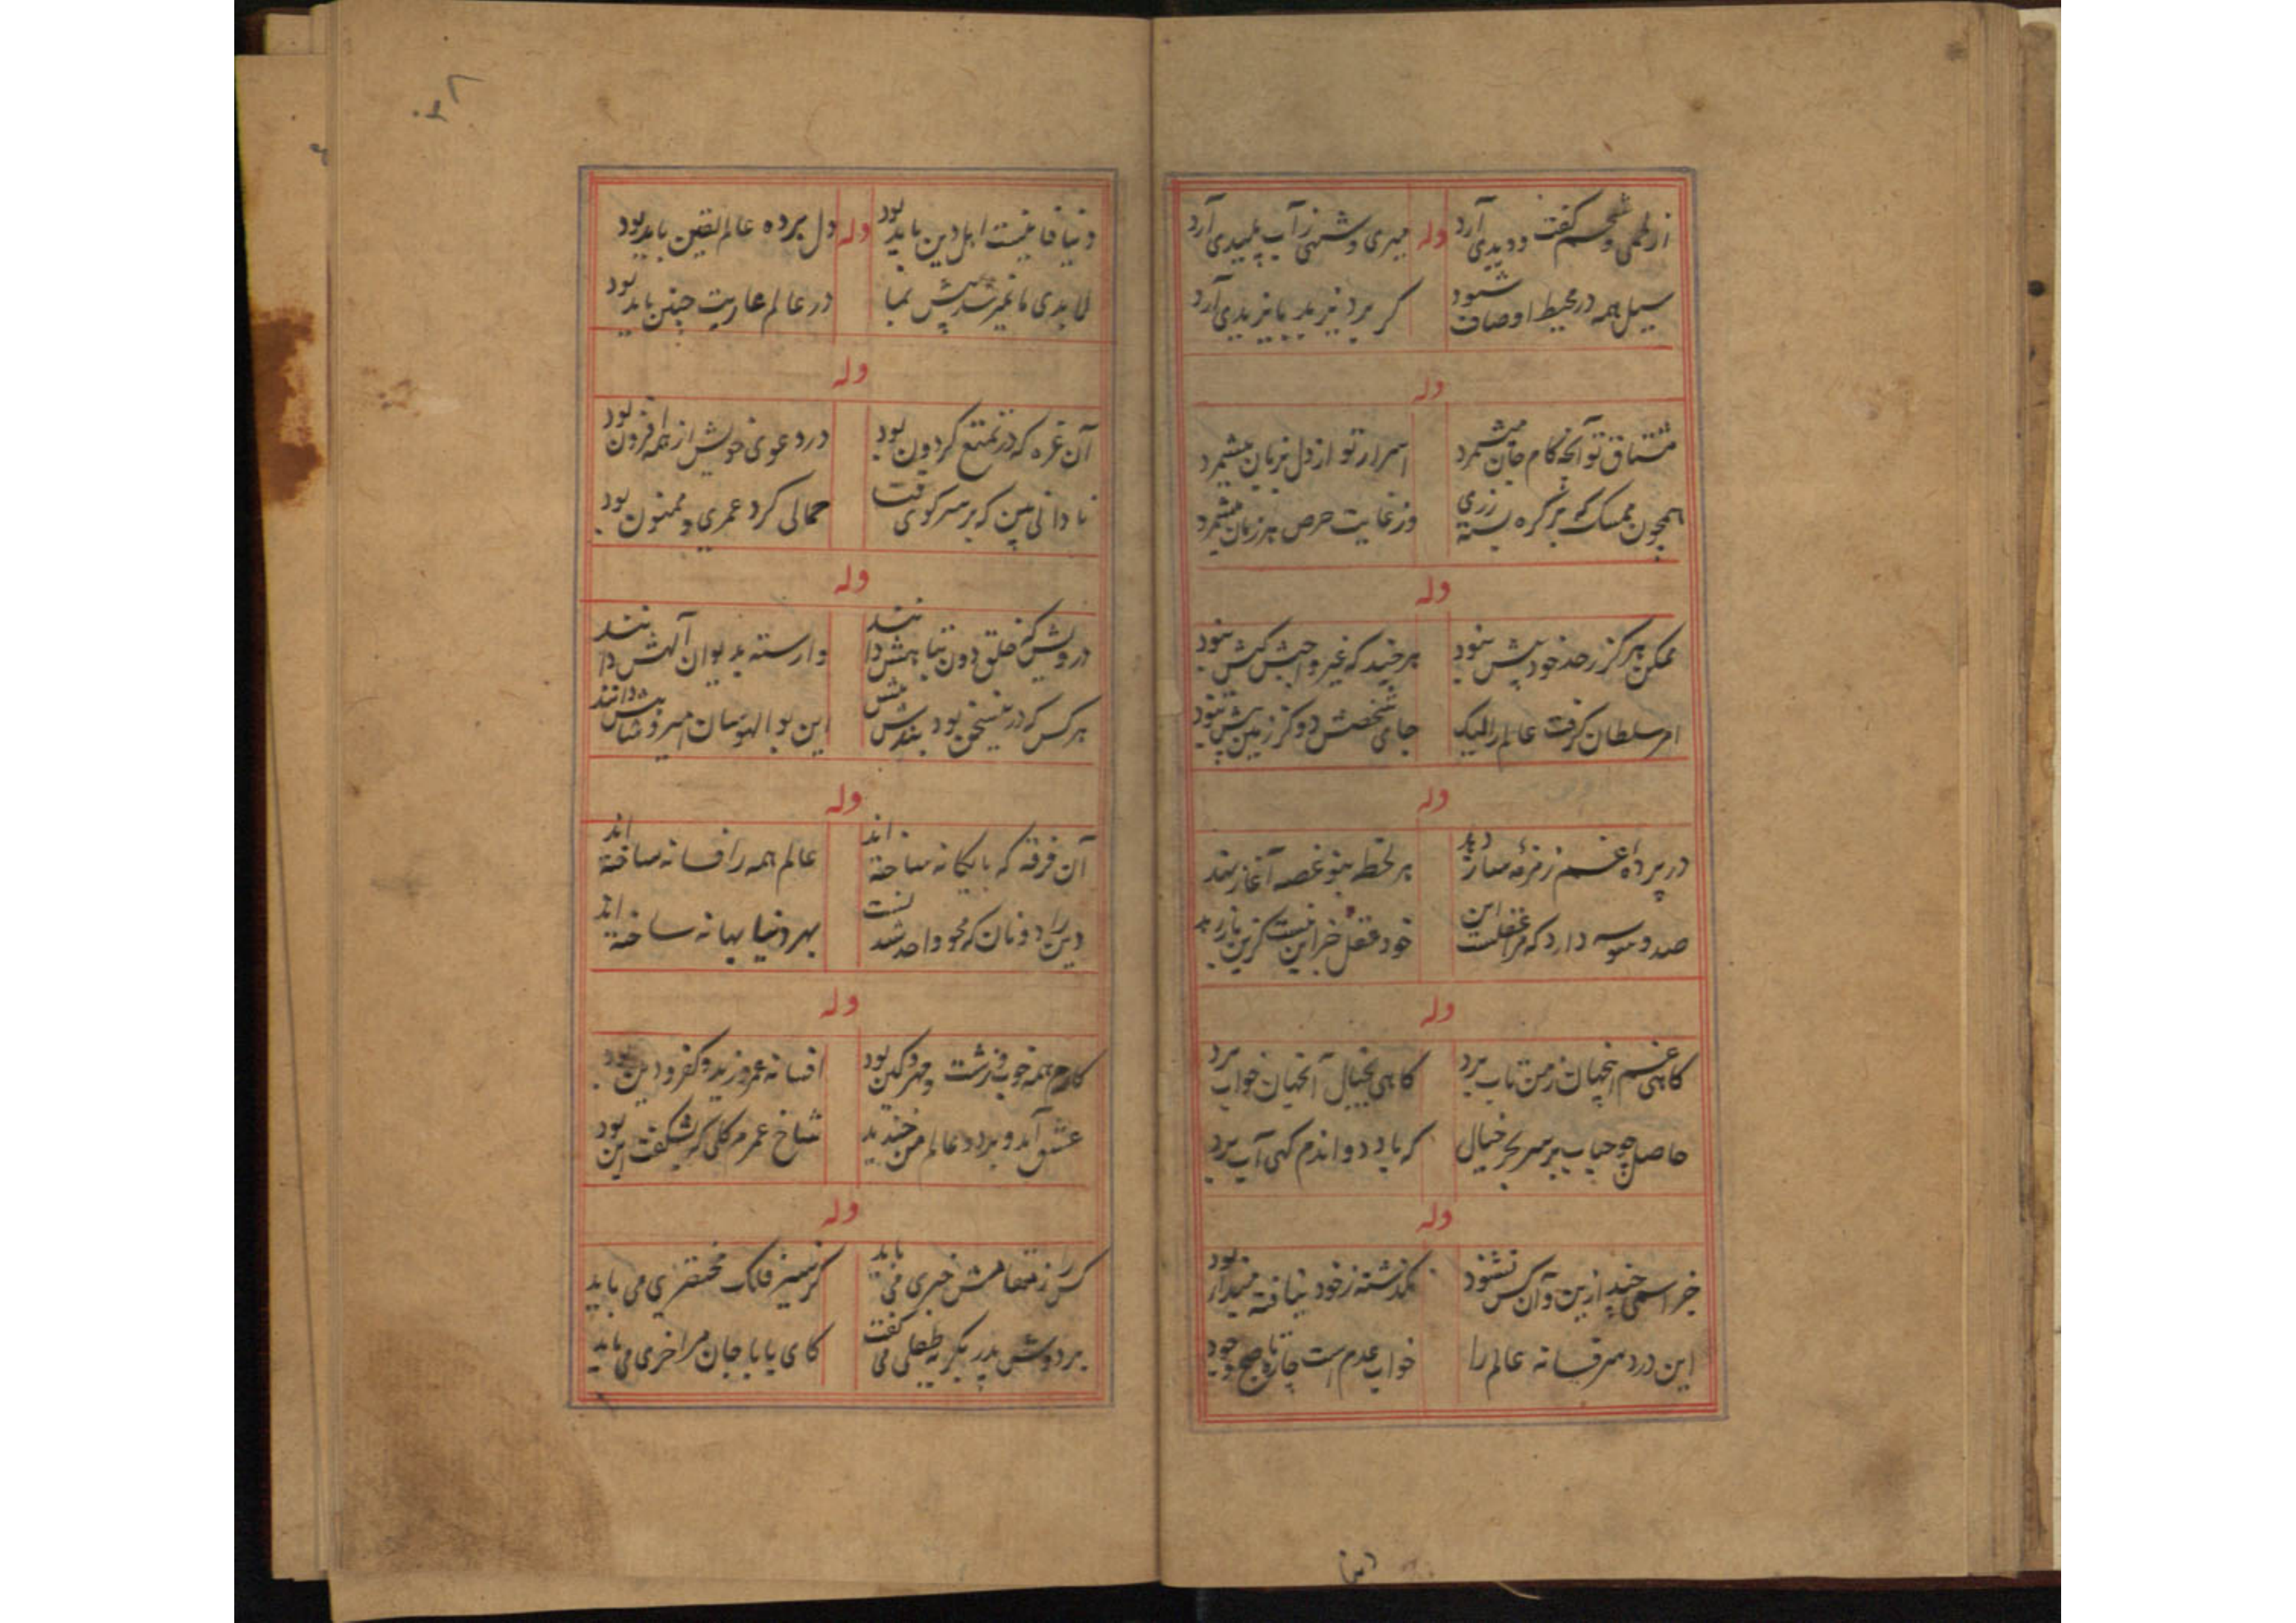 میری وشنی ز آب پلیدی آرد
وله
سیل همه در محیط اوصاف شود
کر برد یزید بایزیدی آرد
وله
مشتاق تو آنچه کام جان میشمرد
اسرار تو از دل بزبان میشمرد
همچون ممسک که بر کره بسته زری
وز غایت حرص هر زمان میشمرد
وله
ممکن هرکز ز حد خود پیش نبود
هر چند که غیر واجبش کیش نبود
امر سلطان کرفت عالم را لیک
جای شخصش دو کز زمین بیش نبود
وله
در پرده غم زمزمه ساز دید
هر لحظه بنو غصه آغاز نهد
صد وسوسه دارد که مرا غفلت این
خود فعل خر این نیست کزین باز رهد
وله
کاهی غم اینجهان ز من تاب برد
کاهی بخیال آنجهان خواب برد
حاصل چو حباب بر سر بحر خیال
که باد دواندم کهی آب برد
وله
جز اسمی چند ازین و آن کس نشنود
نکذشته ز خود نیافته
این درد سر فسانه عالم را
خواب عدم است چاره تا صبح وجود
دنیا
دنیا فانیست اهل دین باید بود
وله
دل برده عالم یقین باید بود
در عالم عاریت چنین باید بود
وله
آن غره که در تمتع کردون بود
در دعوی خویش از همه افزون بود
نادانی بین که بر سر کوی
حمالی کرد عمری و ممنون بود
وله
درویش که خلق دون تباهش دانند
وارسته بدیوان آلهش دانند
هر کس که در
این بوالهوسان میر و شاهش دانند
وله
آن فرقه که با یکانه ساخته اند
عالم همه را فسانه ساخته اند
دین را دونان که محو واحد شدنست
بهر دنیا بهانه ساخته اند
وله
کارم همه خوب و زشت و مهر و کین بود
افسانه عمرو زید و کفر و دین بود
عشق آمد و برد و عالم من خندید
شاخ عمرم کلی که بشکفت این بود
وله
کس را ز مقامش خبری می باید
کر سیر فلک مختصری می باید
بر دوش پدر بکریه طفلی می گفت
کای بابا جان مرا خری می باید